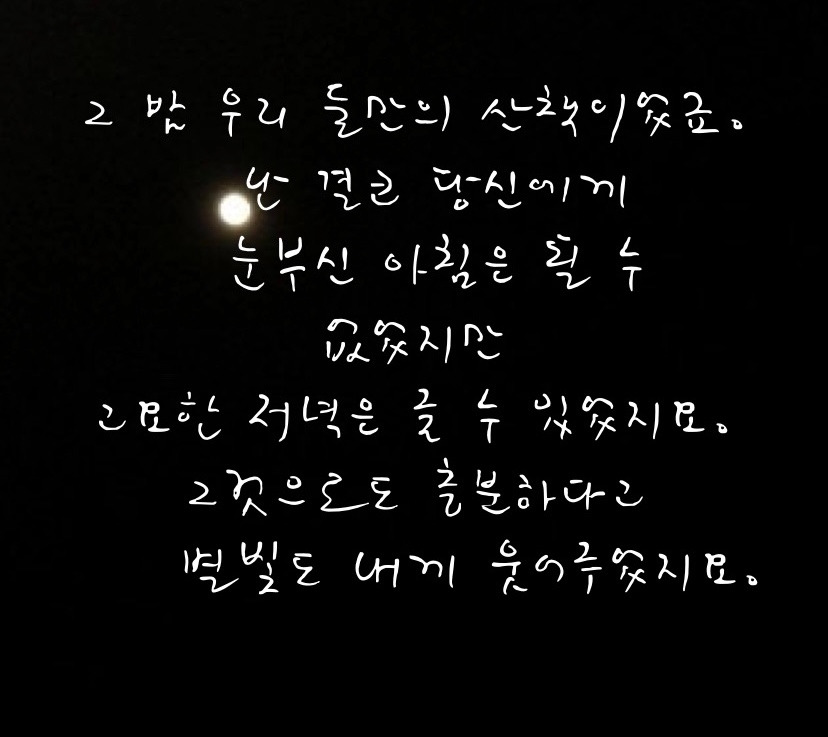 그 밤 우리 둘만의 산책이었죠.
난 결코 당신에게
눈부신 아침은 될 수
없었지만
고요한 저녁은 줄 수 있었지요.
그것으로도 충분하다고
별빛도 내게 웃어주었지요.